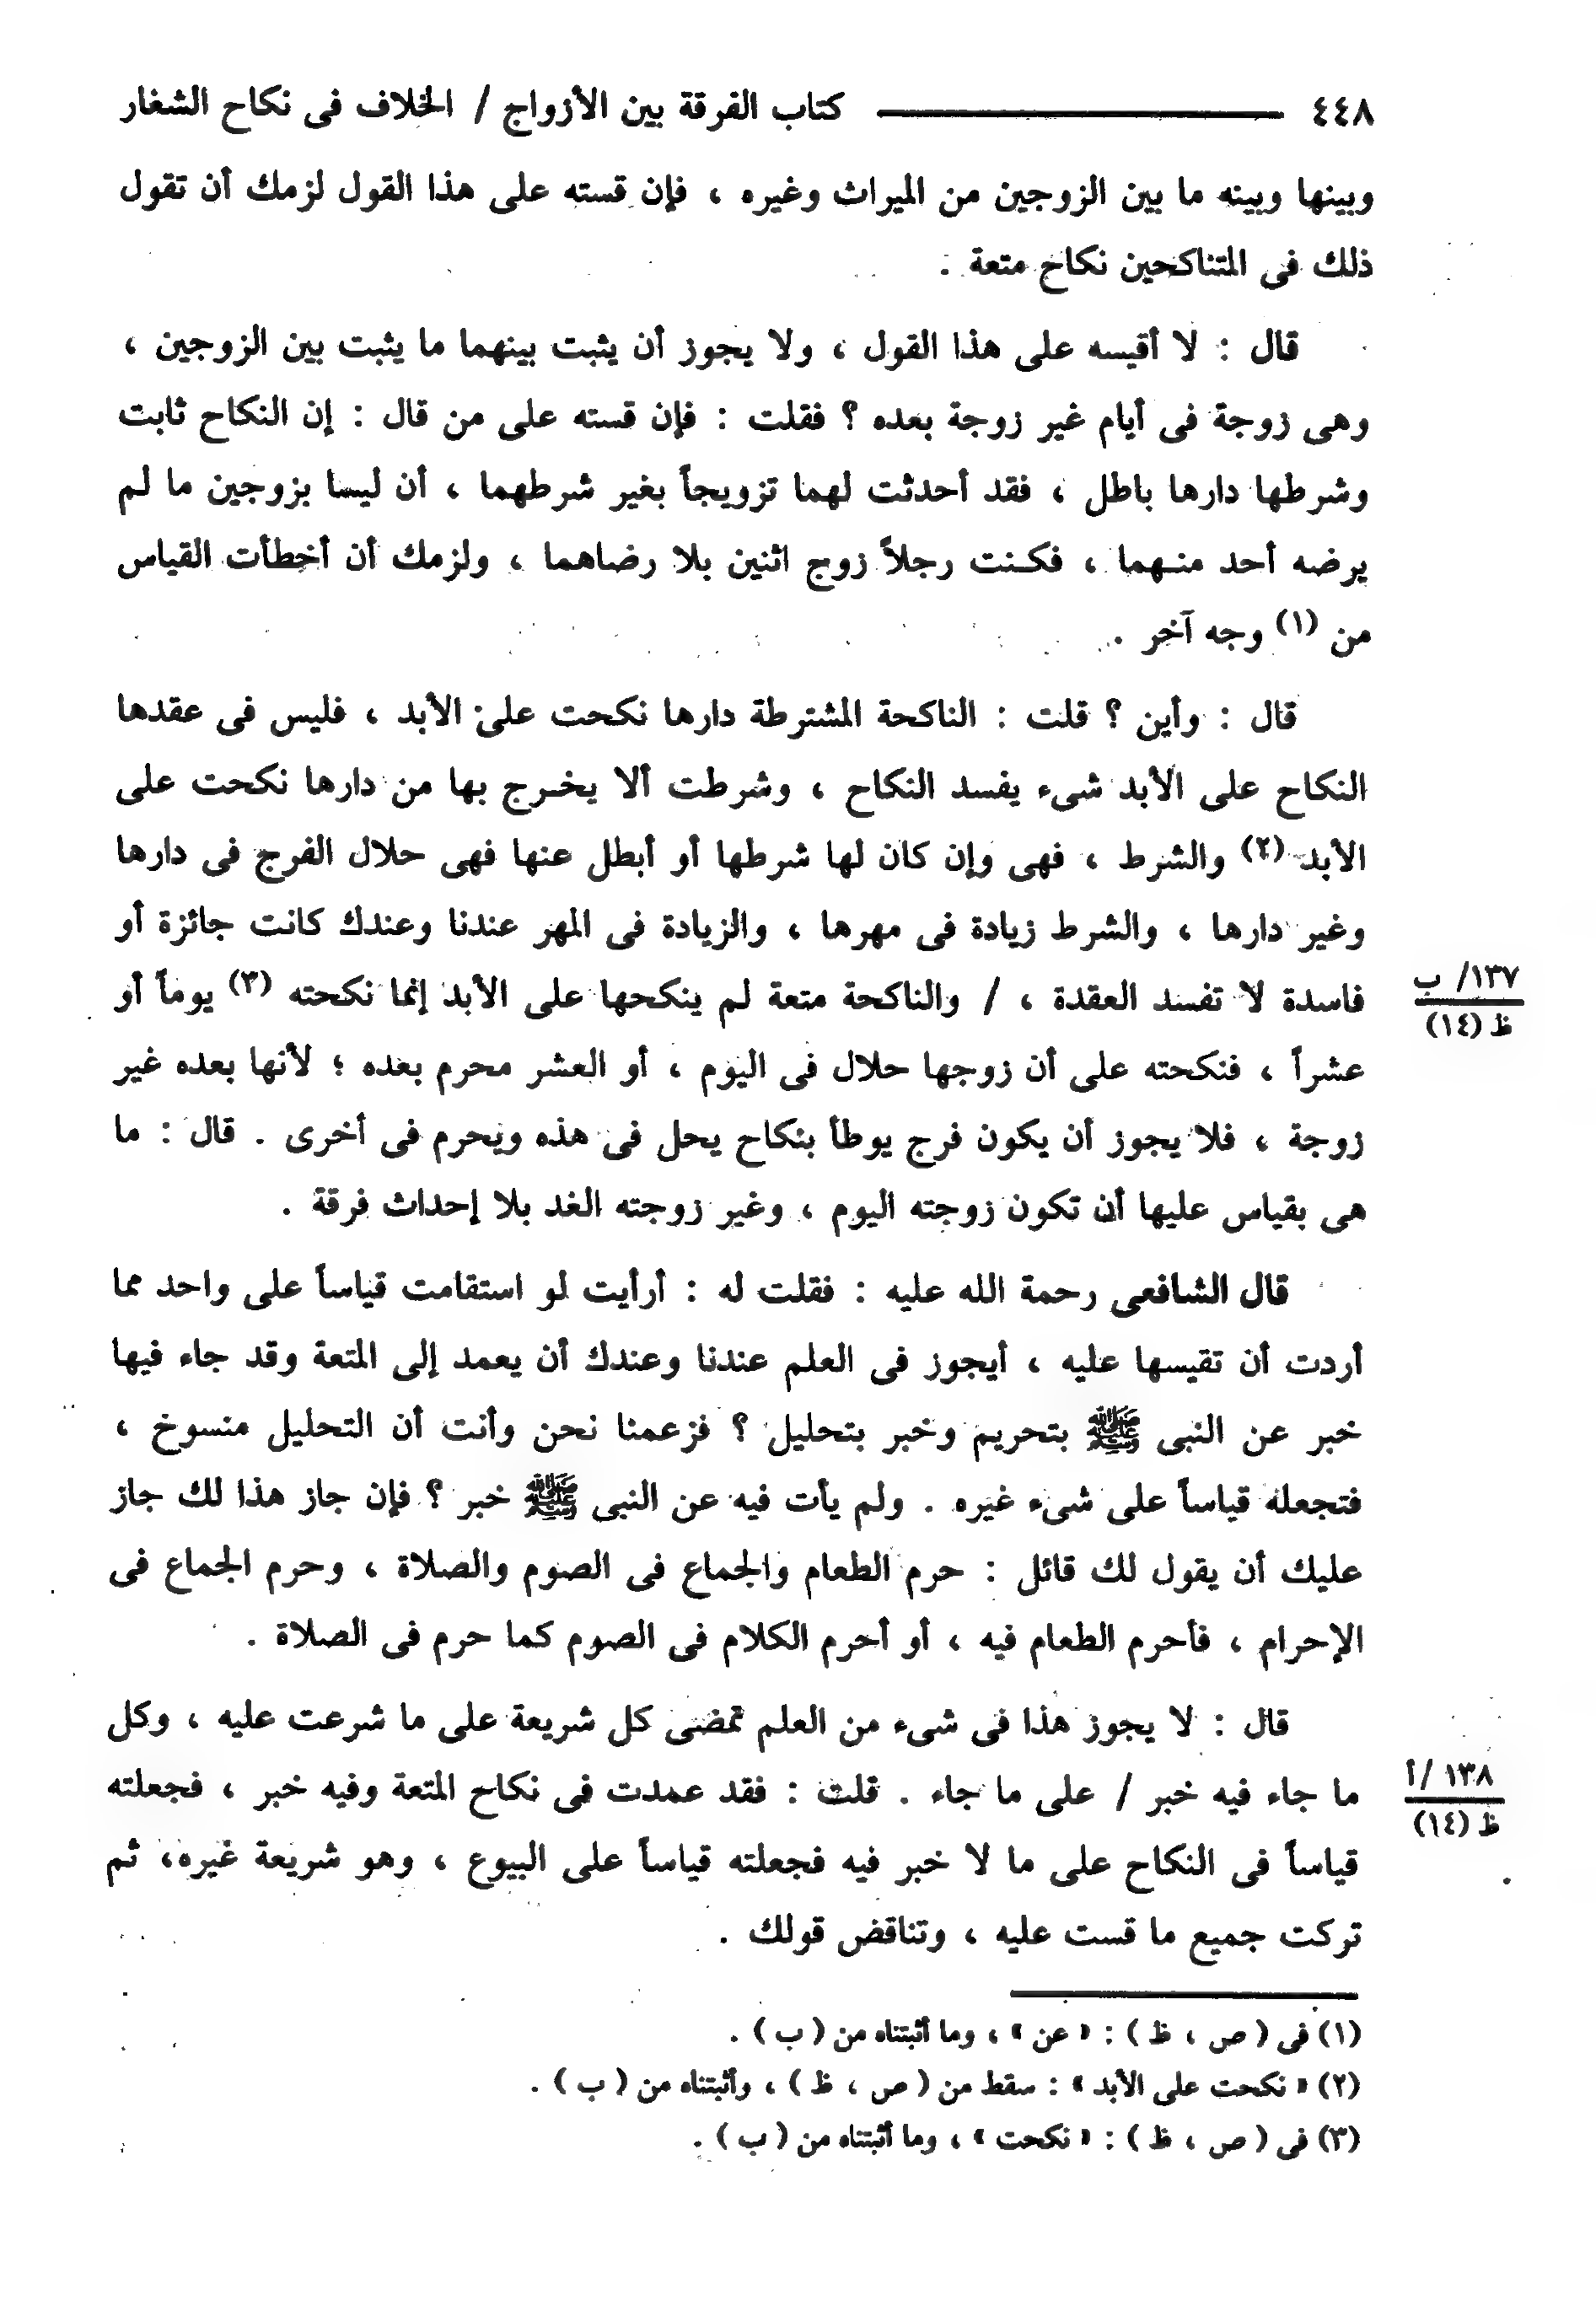 ٤٤٨ كتاب الفرقة بين الأزواج / الخلاف فى نكاح الشغار
وبينها وبينه ما بين الزوجين من الميراث وغيره ، فإن قسته على هذا القول لزمك أن تقول
ذلك فى المتناكحين نكاح متعة .
قال : لا أقيسه على هذا القول ، ولا يجوز أن يثبت بينهما ما يثبت بين الزوجين ،
وهى زوجة فى أيام غير زوجة بعده ؟ فقلت : فإن قسته على من قال : إن النكاح ثابت
وشرطها دارها باطل ، فقد أحدثت لهما تزويجاً بغير شرطهما ، أن ليسا بزوجين ما لم
يرضه أحد منـهما ، فكـنت رجلاً زوج اثنين بلا رضاهما ، ولزمك أن أخطأت القياس
من (١) وجه آخر .
قال : وأين ؟ قلت : الناكحة المشترطة دارها نكحت على الأبد ، فليس فى عقدها
النكاح على الأبد شىء يفسد النكاح ، وشرطت ألا يخـرج بها من دارها نكحت على
الأبد (٢) والشرط ، فهى وإن كان لها شرطها أو أبطل عنها فهى حلال الفرج فى دارها
وغير دارها ، والشرط زيادة فى مهرها ، والزيادة فى المهر عندنا وعندك كانت جائزة أو
فاسدة لا تفسد العقدة ، / والناكحة متعة لم ينكحها على الأبد إنما نكحته (٣) يوماً أو
١٣٧/ ب
ظ (١٤)
عشراً ، فنكحته على أن زوجها حلال فى اليوم ، أو العشر محرم بعده ؛ لأنها بعده غير
زوجة ، فلا يجوز أن يكون فرج يوطأ بنكاح يحل فى هذه ويحرم فى أخرى . قال : ما
هى بقياس عليها أن تكون زوجته اليوم ، وغير زوجته الغد بلا إحداث فرقة .
قال الشافعى رحمة الله عليه : فقلت له : أرأيت لو استقامت قياساً على واحد مما
أردت أن تقيسها عليه ، أيجوز فى العلم عندنا وعندك أن يعمد إلى المتعة وقد جاء فيها
خبر عن النبى ﷺ بتحريم وخبر بتحليل ؟ فزعمنا نحن وأنت أن التحليل منسوخ ،
فتجعله قياساً على شىء غيره . ولم يأت فيه عن النبى ﷺ خبر ؟ فإن جاز هذا لك جاز
عليك أن يقول لك قائل : حرم الطعام والجماع فى الصوم والصلاة ، وحرم الجماع فى
الإحرام ، فأحرم الطعام فيه ، أو أحرم الكلام فى الصوم كما حرم فى الصلاة .
قال : لا يجوز هذا فى شىء من العلم تمضى كل شريعة على ما شرعت عليه ، وكل
ما جاء فيه خبر / على ما جاء . قلت : فقد عمدت فى نكاح المتعة وفيه خبر ، فجعلته
١٣٨ /أ
ظ (١٤)
قياساً فى النكاح على ما لا خبر فيه فجعلته قياساً على البيوع ، وهو شريعة غيره، ثم
تركت جميع ما قست عليه ، وتناقض قولك .
(١) فى ( ص ، ظ ) : « عن » ، وما أثبتناه من ( ب ) .
(٢) « نكحت على الأبد » : سقط من ( ص ، ظ ) ، وأثبتناه من ( ب ) .
(٣) فى ( ص ، ظ ) : « نكحت » ، وما أثبتناه من ( ب ) .